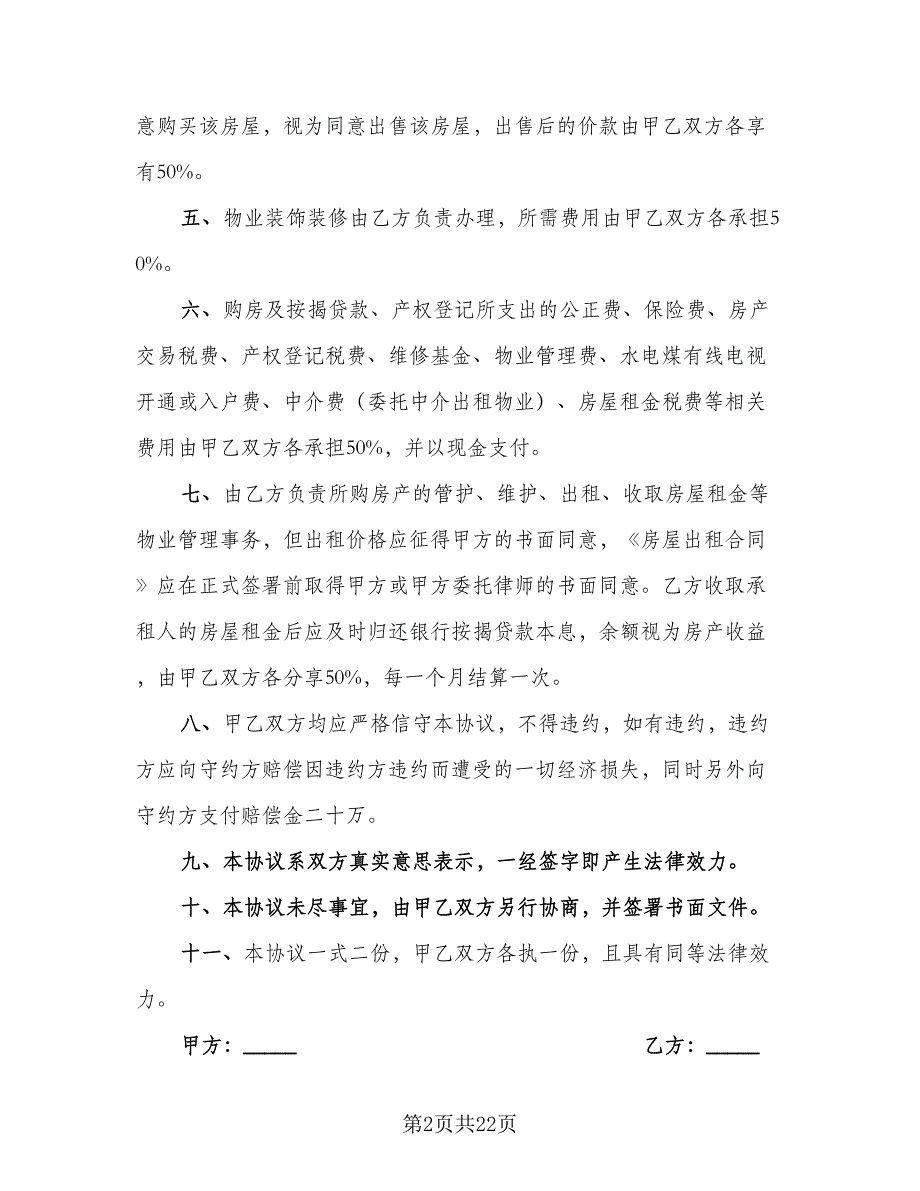 意购买该房屋，视为同意出售该房屋，出售后的价款由甲乙双方各享
有50%。
五、物业装饰装修由乙方负责办理，所需费用由甲乙双方各承担5
0%。
六、购房及按揭贷款、产权登记所支出的公正费、保险费、房产
交易税费、产权登记税费、维修基金、物业管理费、水电煤有线电视
开通或入户费、中介费（委托中介出租物业）、房屋租金税费等相关
费用由甲乙双方各承担50%，并以现金支付。
七、由乙方负责所购房产的管护、维护、出租、收取房屋租金等
物业管理事务，但出租价格应征得甲方的书面同意，《房屋出租合同
》应在正式签署前取得甲方或甲方委托律师的书面同意。乙方收取承
租人的房屋租金后应及时归还银行按揭贷款本息，余额视为房产收益
，由甲乙双方各分享50%，每一个月结算一次。
八、甲乙双方均应严格信守本协议，不得违约，如有违约，违约
方应向守约方赔偿因违约方违约而遭受的一切经济损失，同时另外向
守约方支付赔偿金二十万。
九、本协议系双方真实意思表示，一经签字即产生法律效力。
十、本协议未尽事宜，由甲乙双方另行协商，并签署书面文件。
十一、本协议一式二份，甲乙双方各执一份，且具有同等法律效
力。
甲方：_____ 乙方：_____
第2页共22页